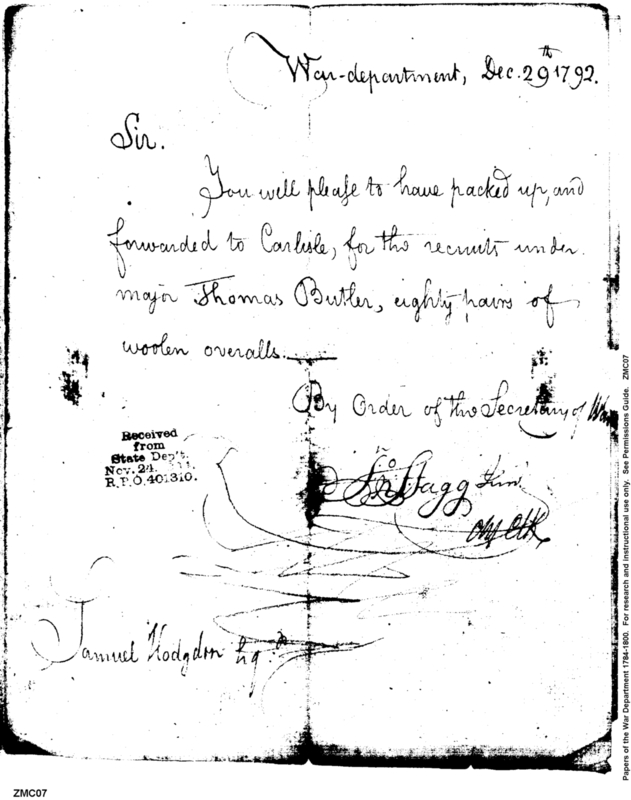 War-department, Dec. 29th 1792.
Sir.
You will please to have packed up, and
forwarded to Carlisle, for the recruits under
major Thomas Butler, eighty pairs of
woolen overalls.
By Order of the Secretary of War
Jno Stagg Junr
Chf Clk
Received
from
State Dep't.
Nov. 24.
R.P.O. 401310.
Samuel Hodgdon Esqr
ZMC07
Papers of the War Department 1784-1800. For research and instructional use only. See Permissions Guide. ZMC07